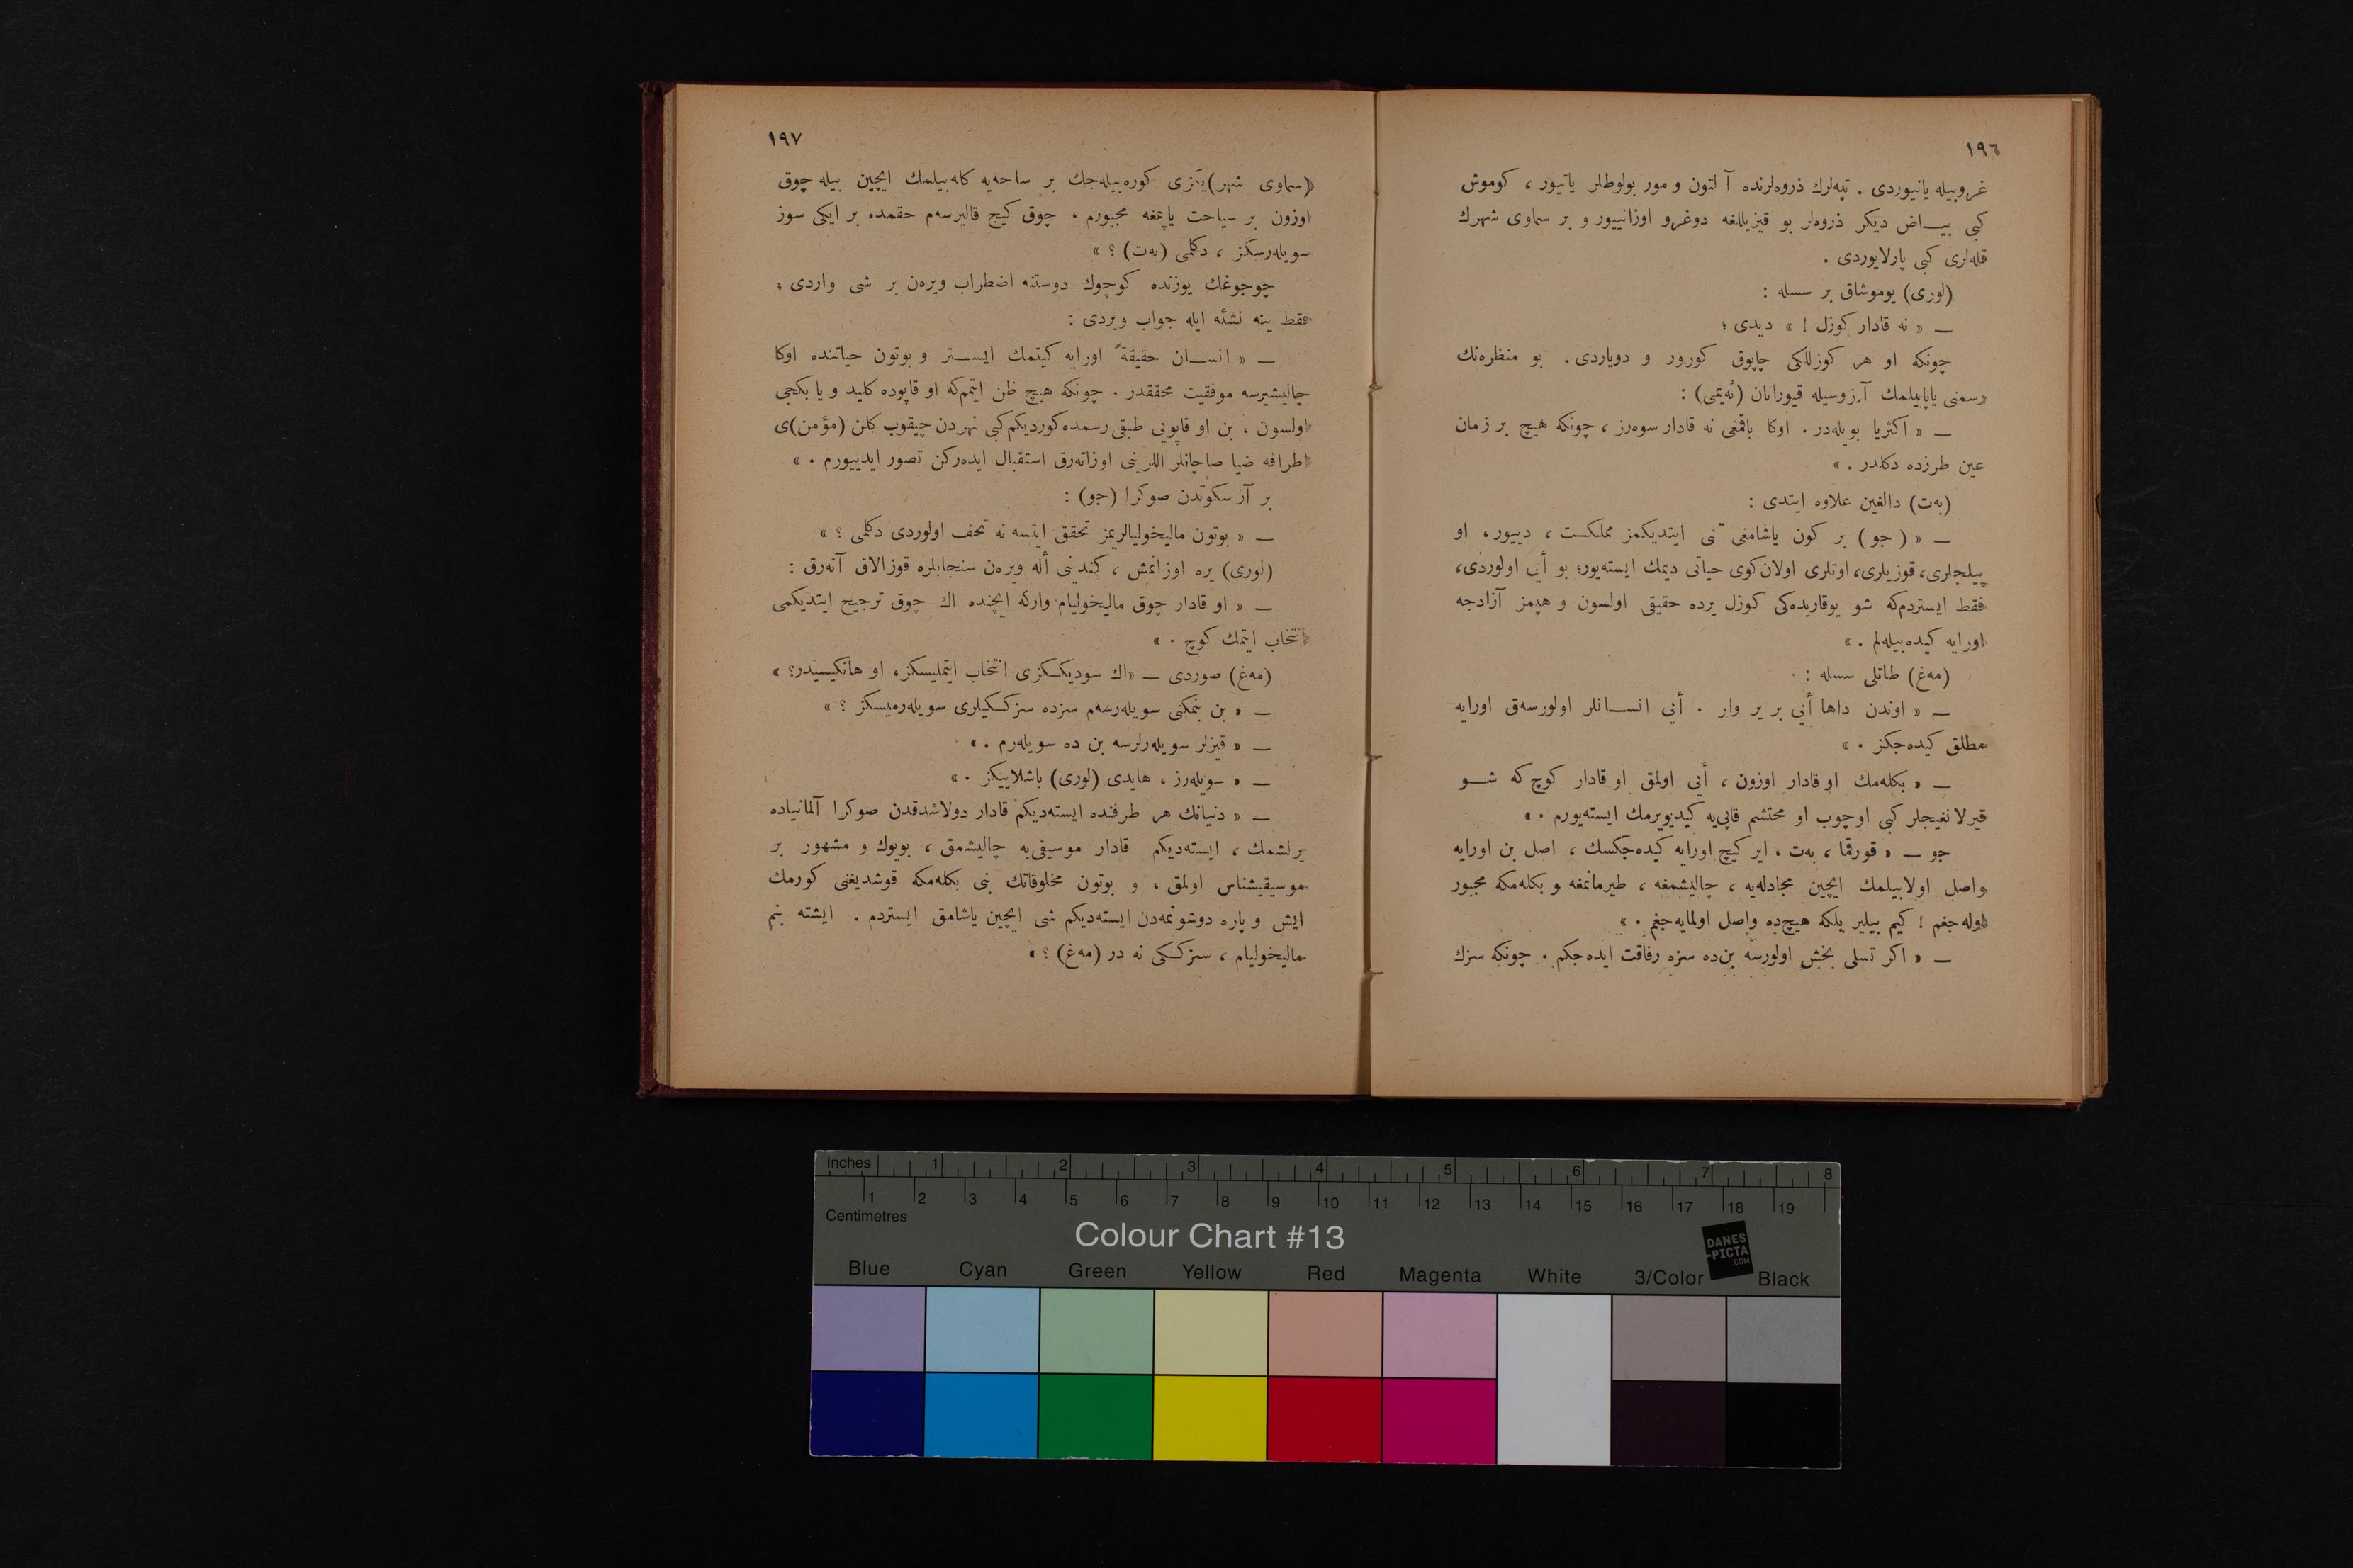 ١٩٦
غروبيله يانيوردی . تپه‌لرك ذروه‌لرنده آلتون و مور بولوطلر ياتيور ، كوموش
كبی بيـاض ديكر ذروه‌لر بو قيزيللغه دوغرو اوزانييور و بر سماوی شهرك
قله‌لری كبی پارلايوردی .
(لوری) يوموشاق بر سسله :
— « نه قادار كوزل ! » ديدی ؛
چونكه او هر كوزللكی چاپوق كورور و دوياردی . بو منظره‌نك
رسمنی ياپابيلمك آرزوسيله قيورانان (ئه‌يمی) :
— « اكثريا بويله‌در . اوكا باقمغی نه قادار سوه‌رز ، چونكه هيچ بر زمان
عين طرزده دكلدر . »
(به‌ت) دالغين علاوه ايتدی :
— « (جو) بر كون ياشامغی تمنی ايتديكمز مملكست ، دييور ، او
پيلجلری، قوزيلری، اوتلری اولان كوی حياتی ديمك ايسته‌يور؛ بو أيی اولوردی،
فقط ايستردم‌كه شو يوقاريده‌كی كوزل يرده حقيقی اولسون و هپمز آزادجه
اورايه كيده‌بيله‌لم . »
(مه‌غ) طاتلی سسله :
— « اوندن داها أيی بر ير وار . أيی انسـانلر اولورسه‌ق اورايه
مطلق كيده‌جكز . »
— « بكله‌مك او قادار اوزون ، أيی اولمق او قادار كوچ كه شـو
قيرلانغيجلر كبی اوچوب او محتشم قاپی‌يه كيديويرمك ايسته‌يورم . »
جو — « قورقما ، به‌ت ، اير كيچ اورايه كيده‌جكسك ، اصل بن اورايه
واصل اولابيلمك ايچين مجادله‌يه ، چاليشمغه ، طيرمانمغه و بكله‌مكه مجبور
اوله‌جغم ! كيم بيلير بلكه هيچ‌ده واصل اولمايه‌جغم . »
— « اكر تسلی بخش اولورسه بن‌ده سزه رفاقت ايده‌جكم . چونكه سزك
١٩٧
(سماوی شهر)يكزی كوره‌بيله‌جك بر ساحه‌يه كله‌بيلمك ايچين بيله چوق
اوزون بر سياحت ياپمغه مجبورم ، چوق كيچ قاليرسه‌م حقمده بر ايكی سوز
سويله‌رسكز ، دكلمی (به‌ت) ؟ »
چوجوغك يوزنده كوچوك دوستنه اضطراب ويره‌ن بر شی واردی ،
فقط ينه نشئه ايله جواب ويردی :
— « انسـان حقيقةً اورايه كيتمك ايسـتر و بوتون حياتنده اوكا
چاليشيرسه موفقيت محققدر . چونكه هيچ ظن ايتمم‌كه او قاپوده كليد و يا بكجی
اولسون ، بن او قاپويی طبقی رسمده كورديكم كبی نهردن چيقوب كلن (مؤمن)ی
اطرافه ضيا صاچانلر اللرينی اوزاته‌رق استقبال ايده‌ركن تصور ايدييورم . »
بر آز سكوتدن صوكرا (جو) :
— « بوتون ماليخوليالريمز تحقق ايتسه نه تحف اولوردی دكلمی ؟ »
(لوری) يره اوزانمش ، كندينی أله ويره‌ن سنجابلره قوزالاق آته‌رق :
— « او قادار چوق ماليخوليام واركه ايچنده اك چوق ترجيح ايتديكمی
انتخاب ايتمك كوچ . »
(مه‌غ) صوردی — «اك سوديكـكزی انتخاب ايتمليسكز، او هانكيسيدر؟ »
— « بن بنمكنی سويله‌رسه‌م سزده سزكـكيلری سويله‌رميسكز ؟ »
— « قيزلر سويله‌رلرسه بن ده سويله‌رم . »
— « سويله‌رز ، هايدی (لوری) باشلاييكز . »
— « دنيانك هر طرفنده ايسته‌ديكم قادار دولاشدقدن صوكرا آلمانياده
يرلشمك ، ايسته‌ديكم قادار موسيقی‌يه چاليشمق ، بويوك و مشهور بر
موسيقيشناس اولمق ، و بوتون مخلوقاتك بنی بكله‌مكه قوشديغنی كورمك
ايش و پاره دوشونمه‌دن ايسته‌ديكم شی ايچين ياشامق ايستردم . ايشته بنم
ماليخوليام ، سزكـكی نه در (مه‌غ) ؟ »
Inches 1 2 3 4 5 6 7 8
1 2 3 4 5 6 7 8 9 10 11 12 13 14 15 16 17 18 19
Centimetres
Colour Chart #13
DANES
-PICTA
.COM
Blue Cyan Green Yellow Red Magenta White 3/Color Black